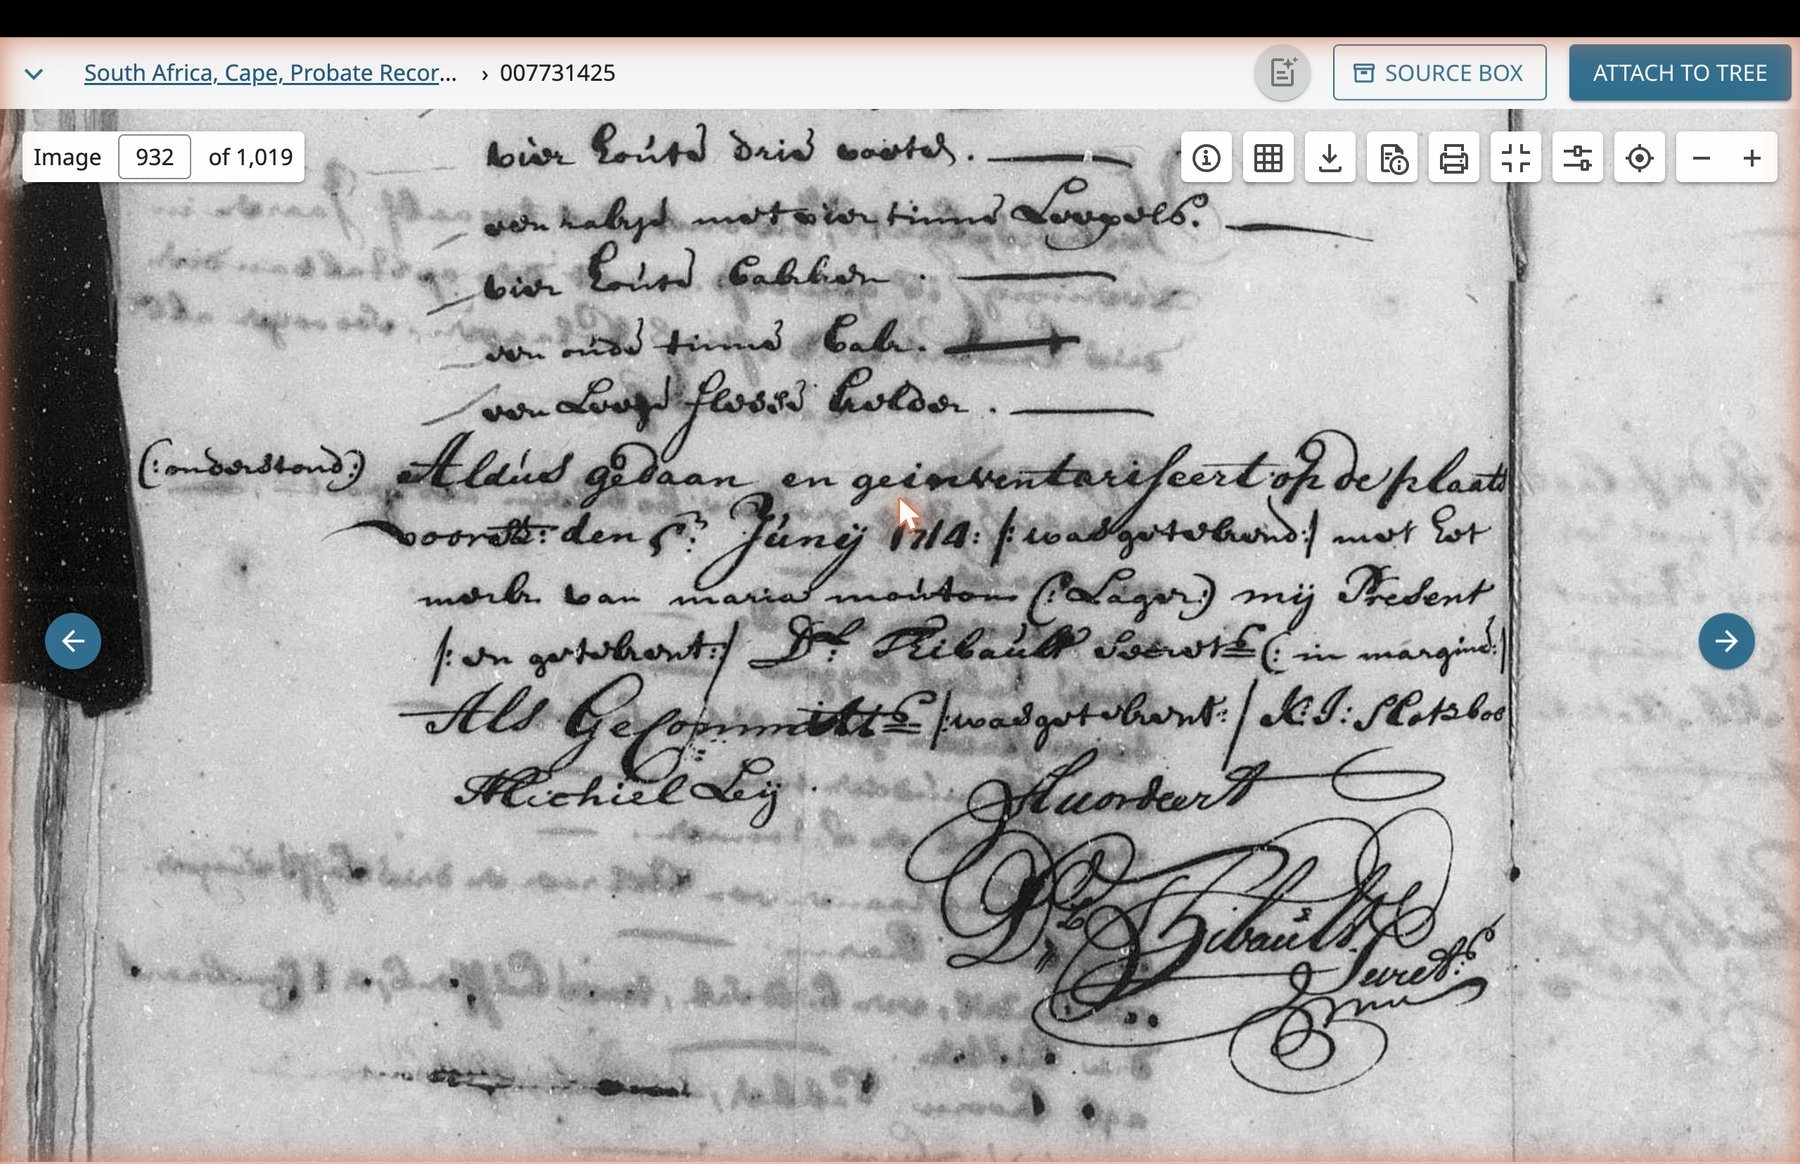 South Africa, Cape, Probate Recor... › 007731425
SOURCE BOX
ATTACH TO TREE
Image 932 of 1,019
vier houte drie
een met vier tinne Leepels.
vier houte backken
een oude tinne back.
een Leege flesse kelder.
(:onderstond:) Aldus gedaan en geinventariseert op de plaats
voorsz: den Junij 1714: /:was getekend:/ met het
merk van maria mouton (:Lager:) mij Present
/:en getekent:/ D: Thibault Secrets (:in margine:/
Als Gecommitts /:was getekent:/ K: J: Slotsboo
Michiel Leij
Accordeert
D: Thibault
Secrets